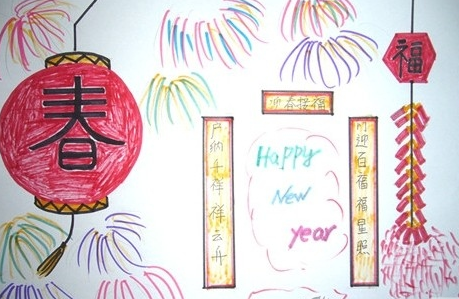 春
福
迎春接福
门迎百福福星照
户纳千祥祥云
Happy
New
year